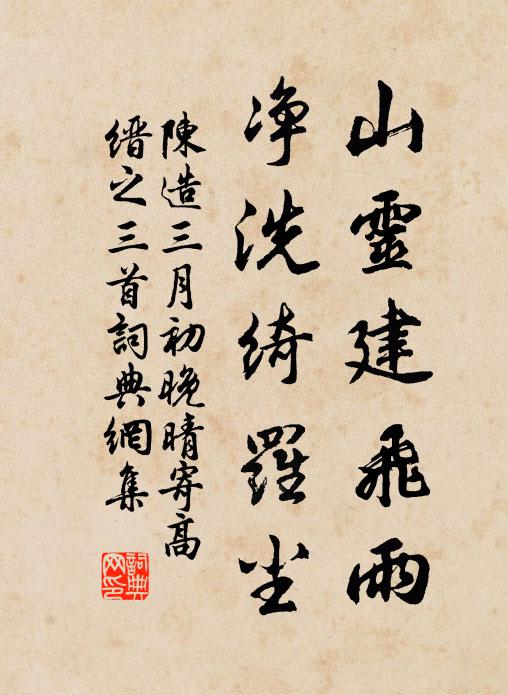 山靈建飛雨
净洗綺羅尘
陳造三月初晚晴寄高
縉之三首詞典網集
詞典网印